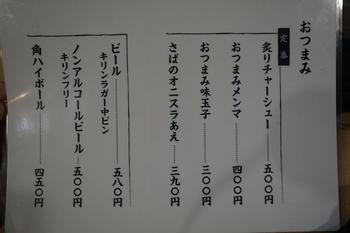 おつまみ
定番
炙りチャーシュー 五〇〇円
おつまみメンマ 四〇〇円
おつまみ味玉子 三〇〇円
さばのオニスラあえ 三九〇円
ビール 五八〇円
キリンラガー中ビン
ノンアルコールビール 五〇〇円
キリンフリー
角ハイボール 四五〇円